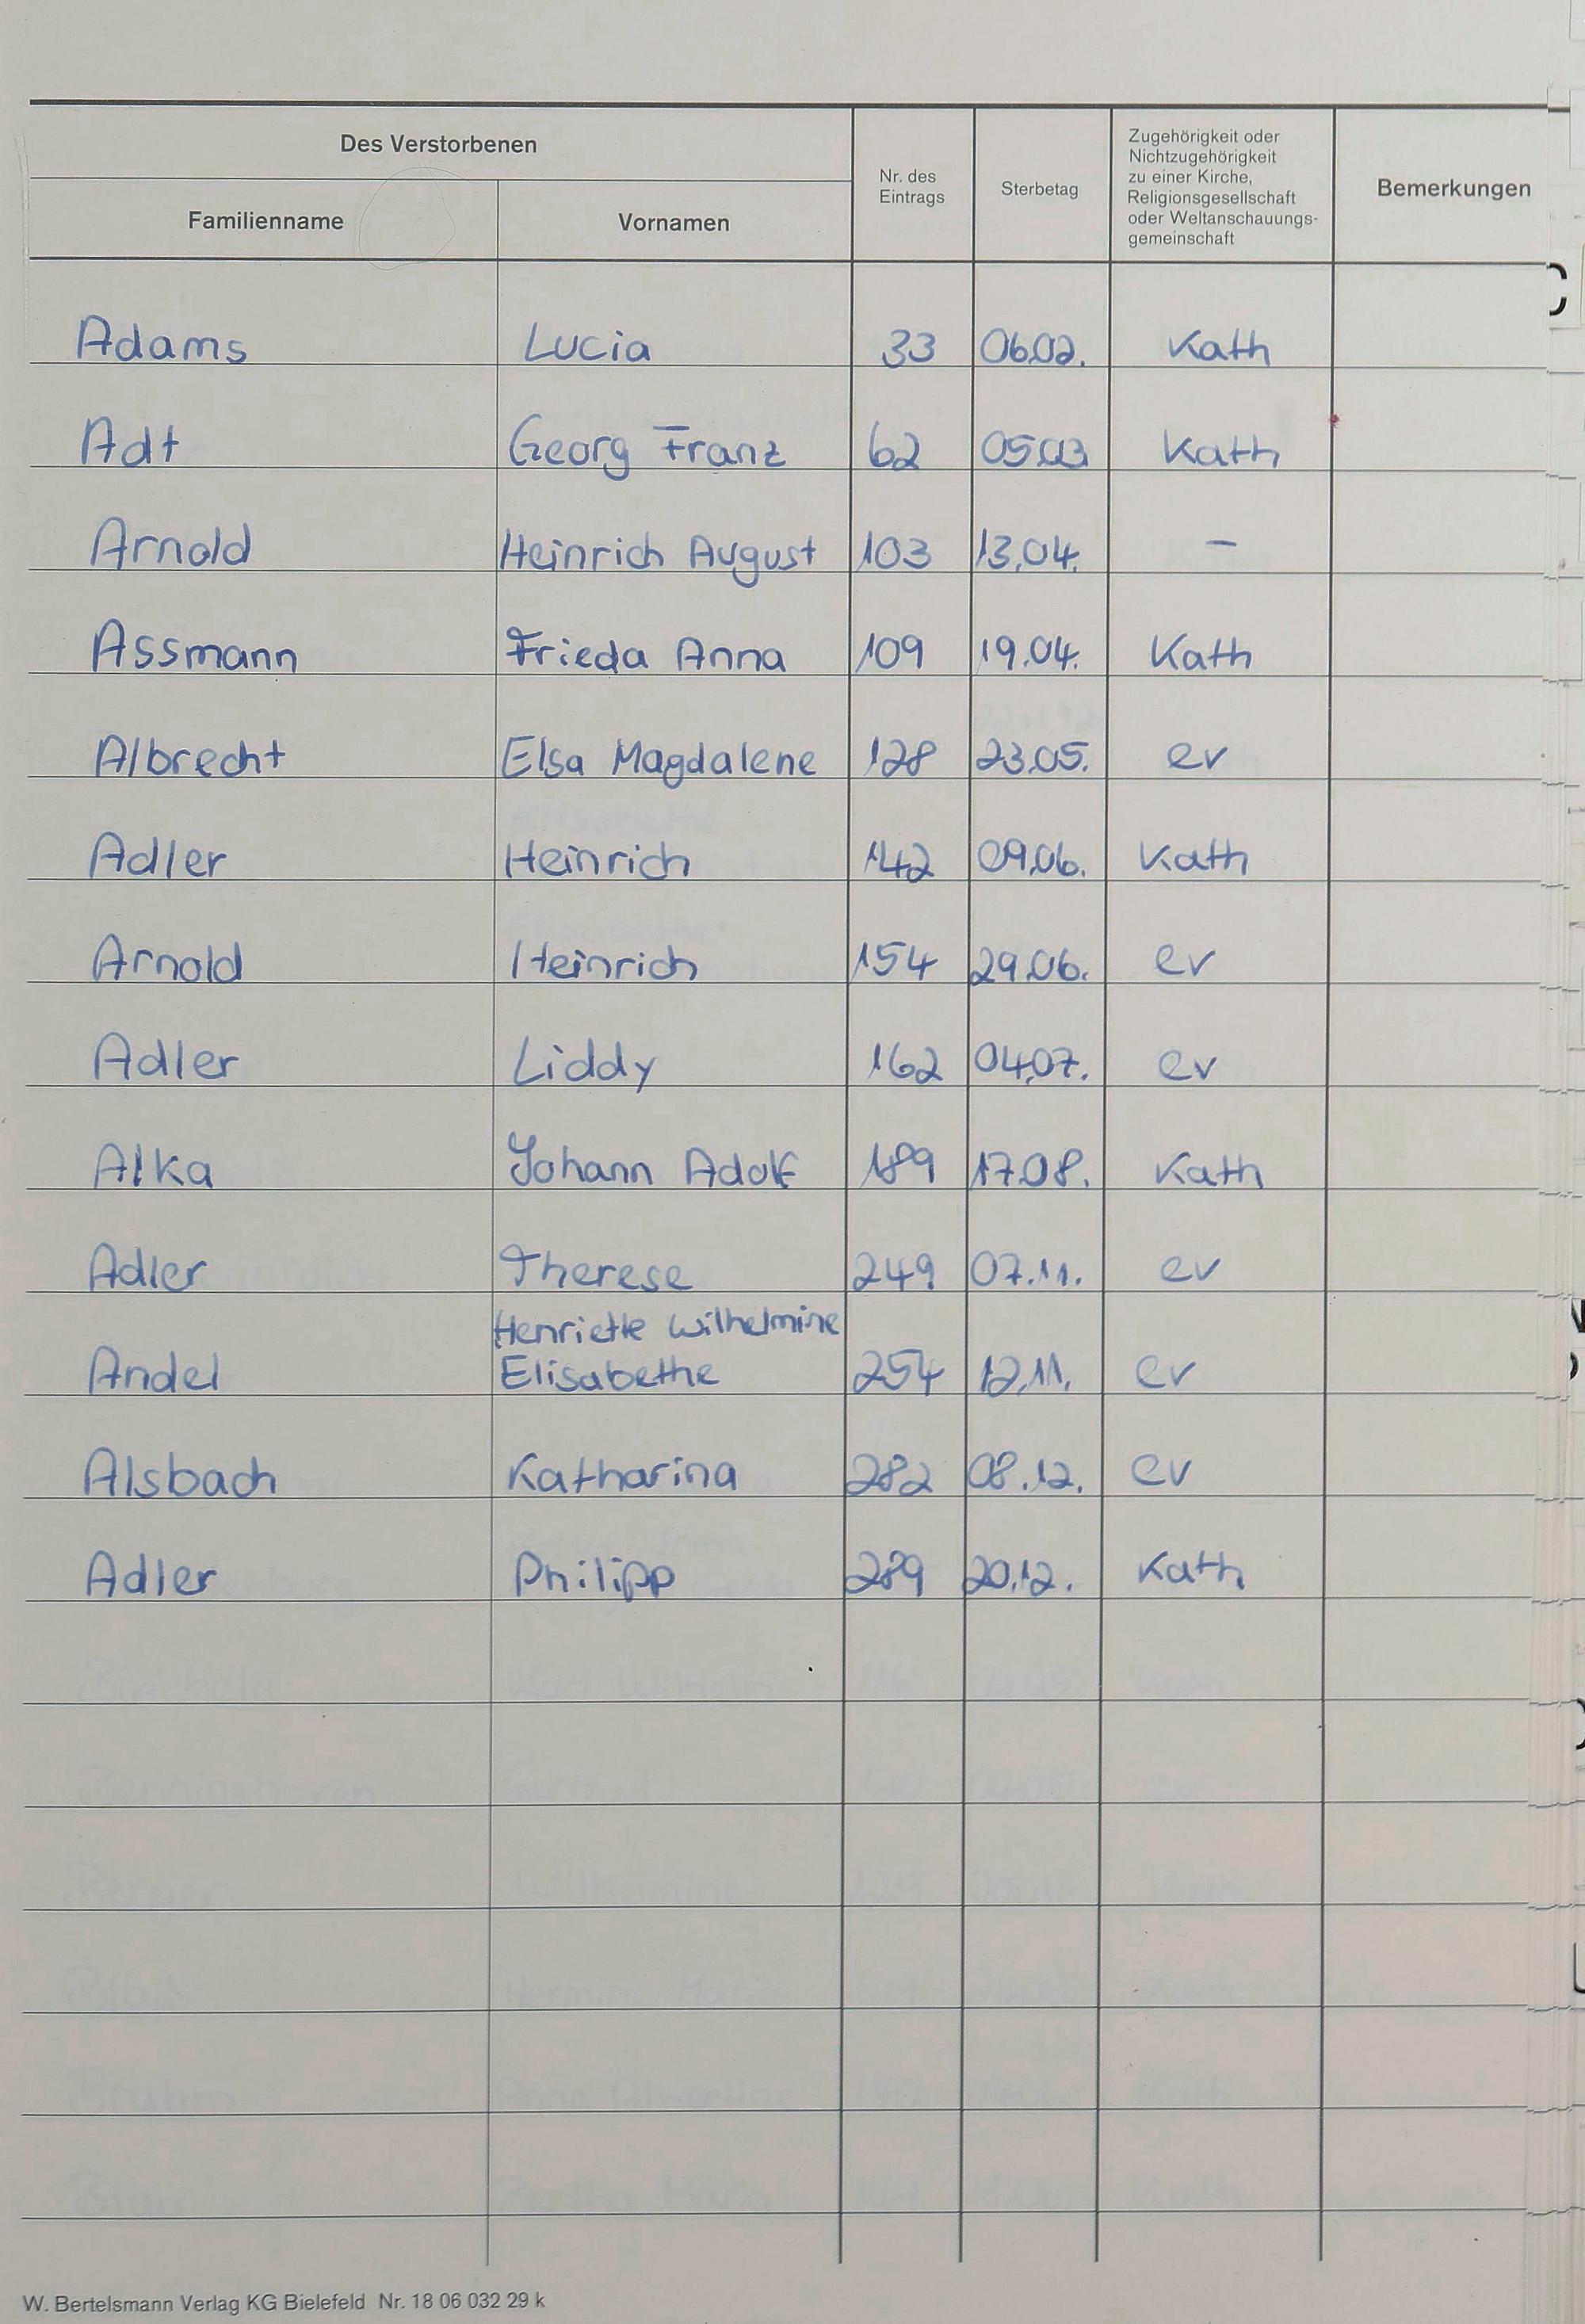 Des Verstorbenen
Familienname
Vornamen
Nr. des
Eintrags
Sterbetag
Zugehörigkeit oder
Nichtzugehörigkeit
zu einer Kirche,
Religionsgesellschaft
oder Weltanschauungs-
gemeinschaft
Bemerkungen
Adams Lucia 33 06.02. Kath
Adt Georg Franz 62 05.03. Kath
Arnold Heinrich August 103 13.04. –
Assmann Frieda Anna 109 19.04. Kath
Albrecht Elsa Magdalene 128 23.05. ev
Adler Heinrich 142 09.06. Kath
Arnold Heinrich 154 29.06. ev
Adler Liddy 162 04.07. ev
Alka Johann Adolf 189 17.08. Kath
Adler Therese 249 07.11. ev
Henriette Wilhelmine
Andel Elisabethe 254 12.11. ev
Alsbach Katharina 282 08.12. ev
Adler Philipp 289 20.12. Kath
W. Bertelsmann Verlag KG Bielefeld Nr. 18 06 032 29 k